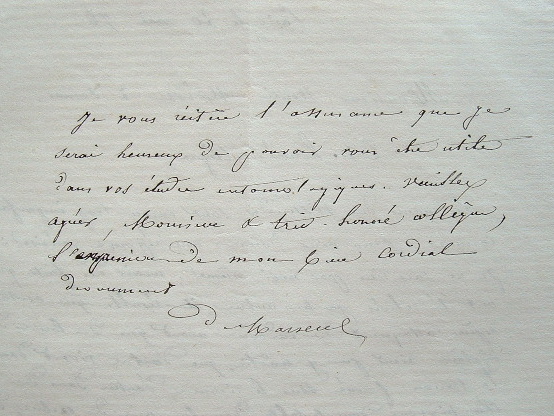 Je vous réitère l'assurance que je
serai heureux de pouvoir vous être utile
dans vos études entomologiques. Veuillez
agréer, Monsieur & très-honoré collègue,
l'expression de mon bien cordial
dévouement
D Marseul